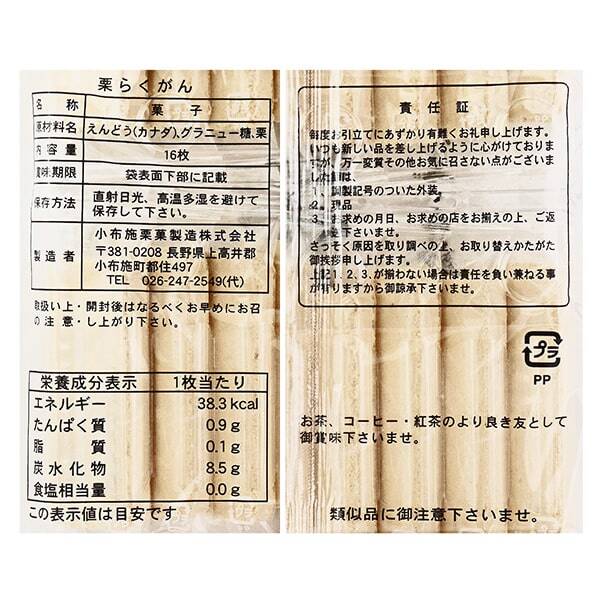 栗らくがん
名称 菓子
原材料名 えんどう(カナダ)、グラニュー糖、栗
内容量 16枚
賞味期限 袋表面下部に記載
保存方法 直射日光、高温多湿を避けて
保存して下さい。
製造者 小布施栗菓製造株式会社
〒381-0208 長野県上高井郡
小布施町都住497
TEL 026-247-2549(代)
取扱い上・開封後はなるべくお早めにお召
の注意・し上がり下さい。
栄養成分表示 1枚当たり
エネルギー 38.3kcal
たんぱく質 0.9g
脂質 0.1g
炭水化物 8.5g
食塩相当量 0.0g
この表示値は目安です
責任証
毎度お引立てにあずかり有難くお礼申し上げます。
いつも新しい品を差し上げるように心がけております
が、万一変質その他お気に召さない点がございま
した節は、
1、調製記号のついた外装。
2、現品
3、お求めの月日、お求めの店をお揃えの上、ご返
差下さいませ。
さっそく原因を取り調べの上、お取り替えかたがた
御挨拶申し上げます。
上記1.2.3.が揃わない場合は責任を負い兼ねる事
が有りますから御諒承下さいませ。
プラ
PP
お茶、コーヒー・紅茶のより良き友として
御賞味下さいませ。
類似品に御注意下さいませ。